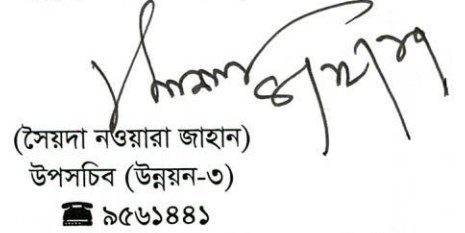 (সৈয়দা নওয়ারা জাহান)
উপসচিব (উন্নয়ন-৩)
☎ ৯৫৬১৪৪১